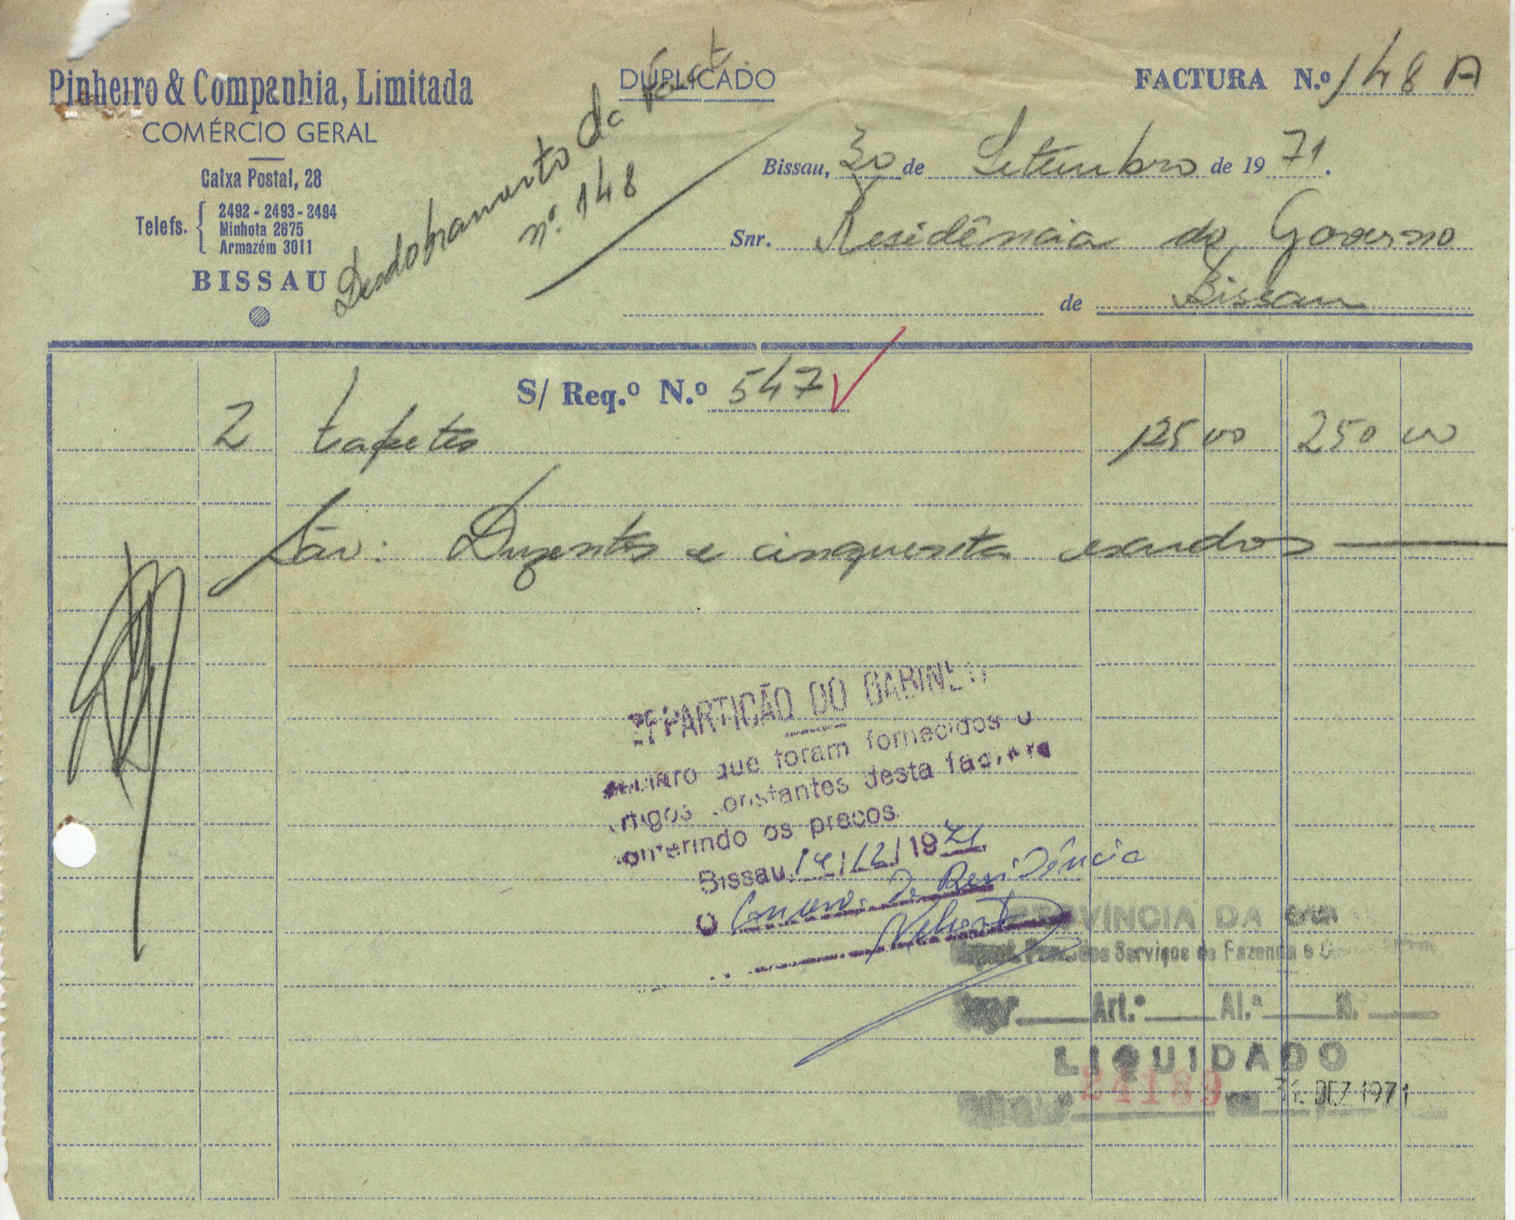 Pinheiro & Companhia, Limitada
COMÉRCIO GERAL
Caixa Postal, 28
Telefs. 2492 - 2493 - 2494
Minhota 2675
Armazém 3011
BISSAU
Desdobramento da Fat.
nº. 148
DUPLICADO
FACTURA N.º 148 A
Bissau, 30 de Setembro de 1971.
Snr. Residência do Governo
de Bissau
S/ Req.º N.º 547
2 tapetes 125 00 250 00
São: Duzentos e cinquenta escudos
REPARTIÇÃO DO GABINETE
que foram fornecidos o
artigos constantes desta factura
conferindo os preços
Bissau, 12/1971
O de Residência
PROVÍNCIA DA
dos Serviços de Fazenda e
Art.º Al.ª N.
LIQUIDADO
31. DEZ 1971